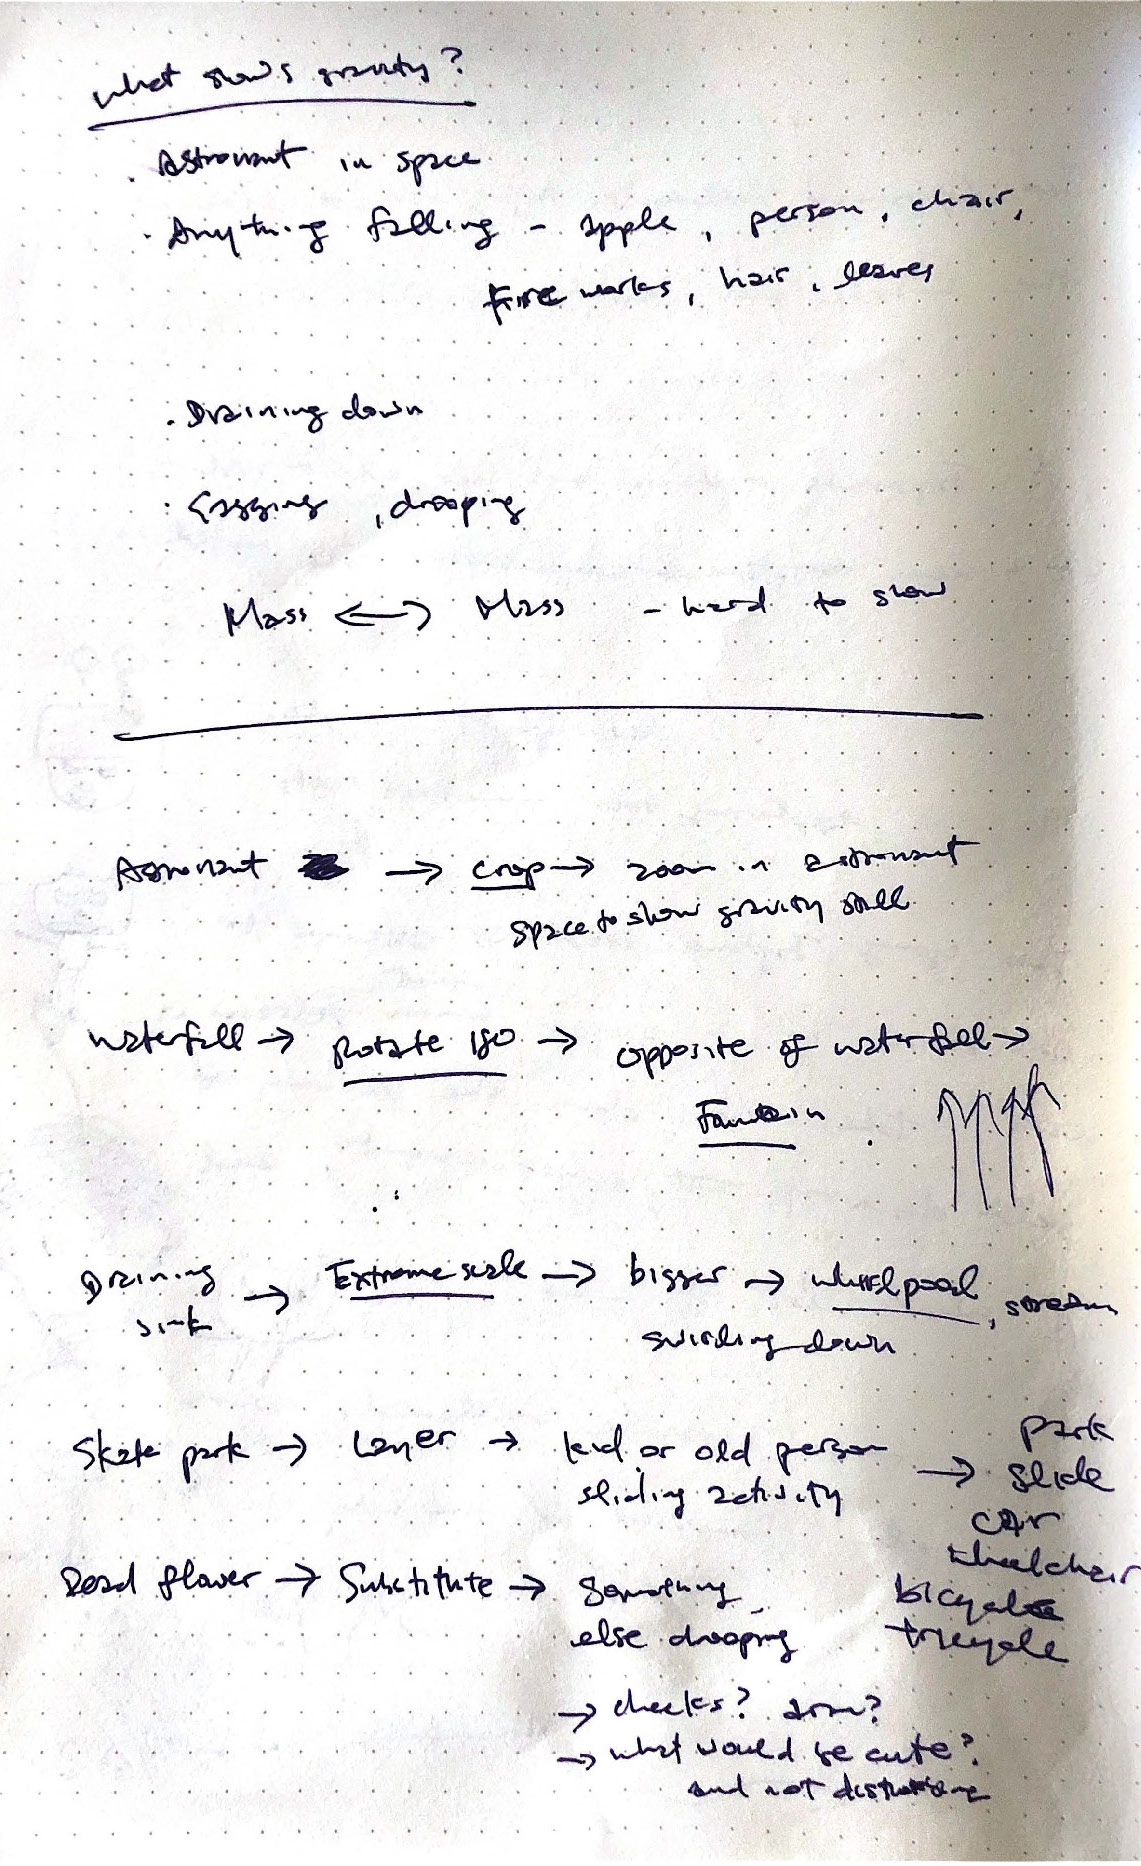 What shows gravity?
. Astronaut in space
. Anything falling - apple, person, chair,
Fire works, hair, leaves
. Draining down
. Sagging, drooping
Mass ↔ Mass - hard to show
Astronaut → crop → zoom in astronaut
space to show gravity still
Waterfall → Rotate 180 → opposite of waterfall →
Fountain
Draining → Extreme scale → bigger → whirlpool, stream
sink swirling down
Skate park → Layer → kid or old person → park
sliding activity slide
car
wheelchair
Dead flower → Substitute → Something bicycle
else drooping tricycle
→ cheeks? arm?
→ what would be cute?
and not disturbing